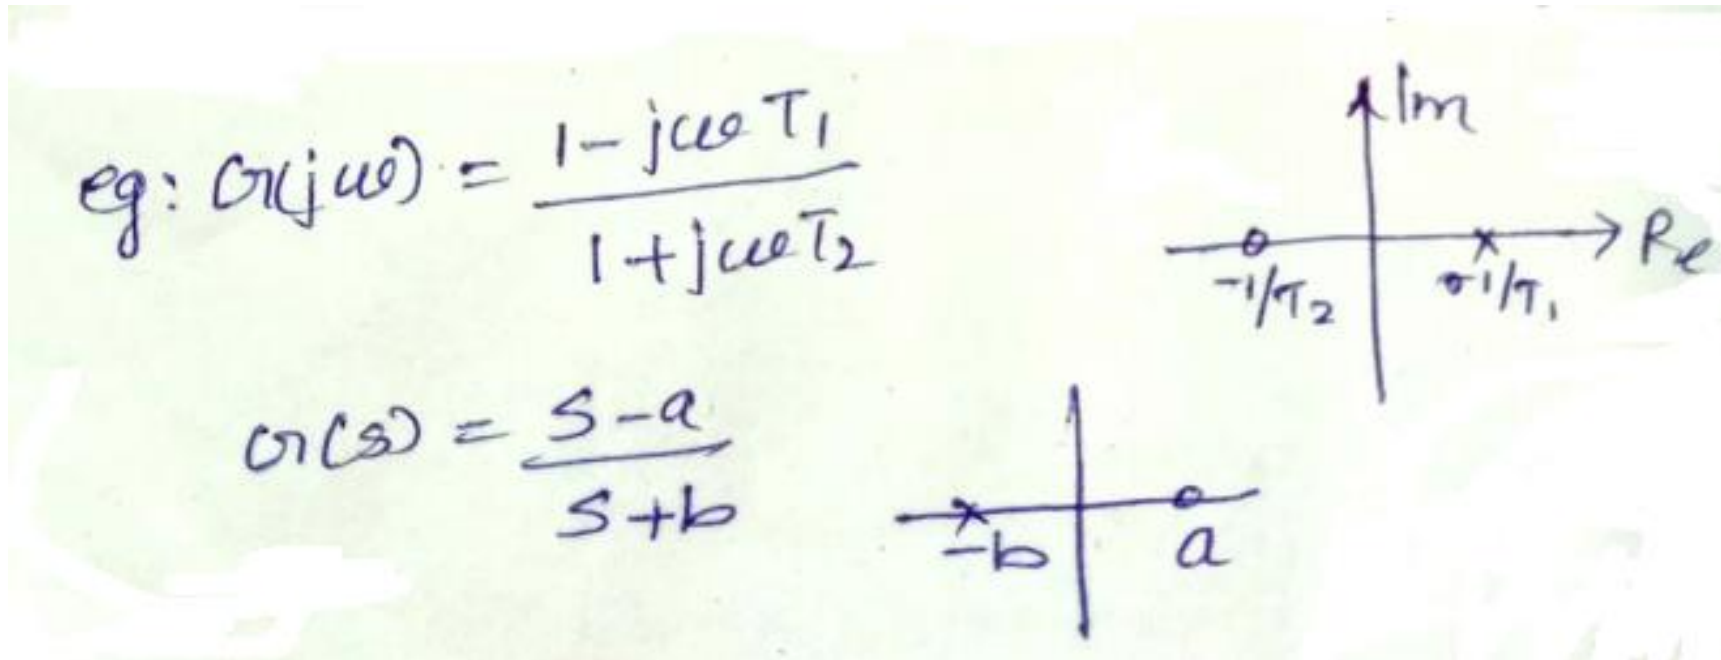 eg: G(jω) = (1 - jωT₁) / (1 + jωT₂)
Im
Re
-1/T₂
-1/T₁
G(s) = (s - a) / (s + b)
-b
a